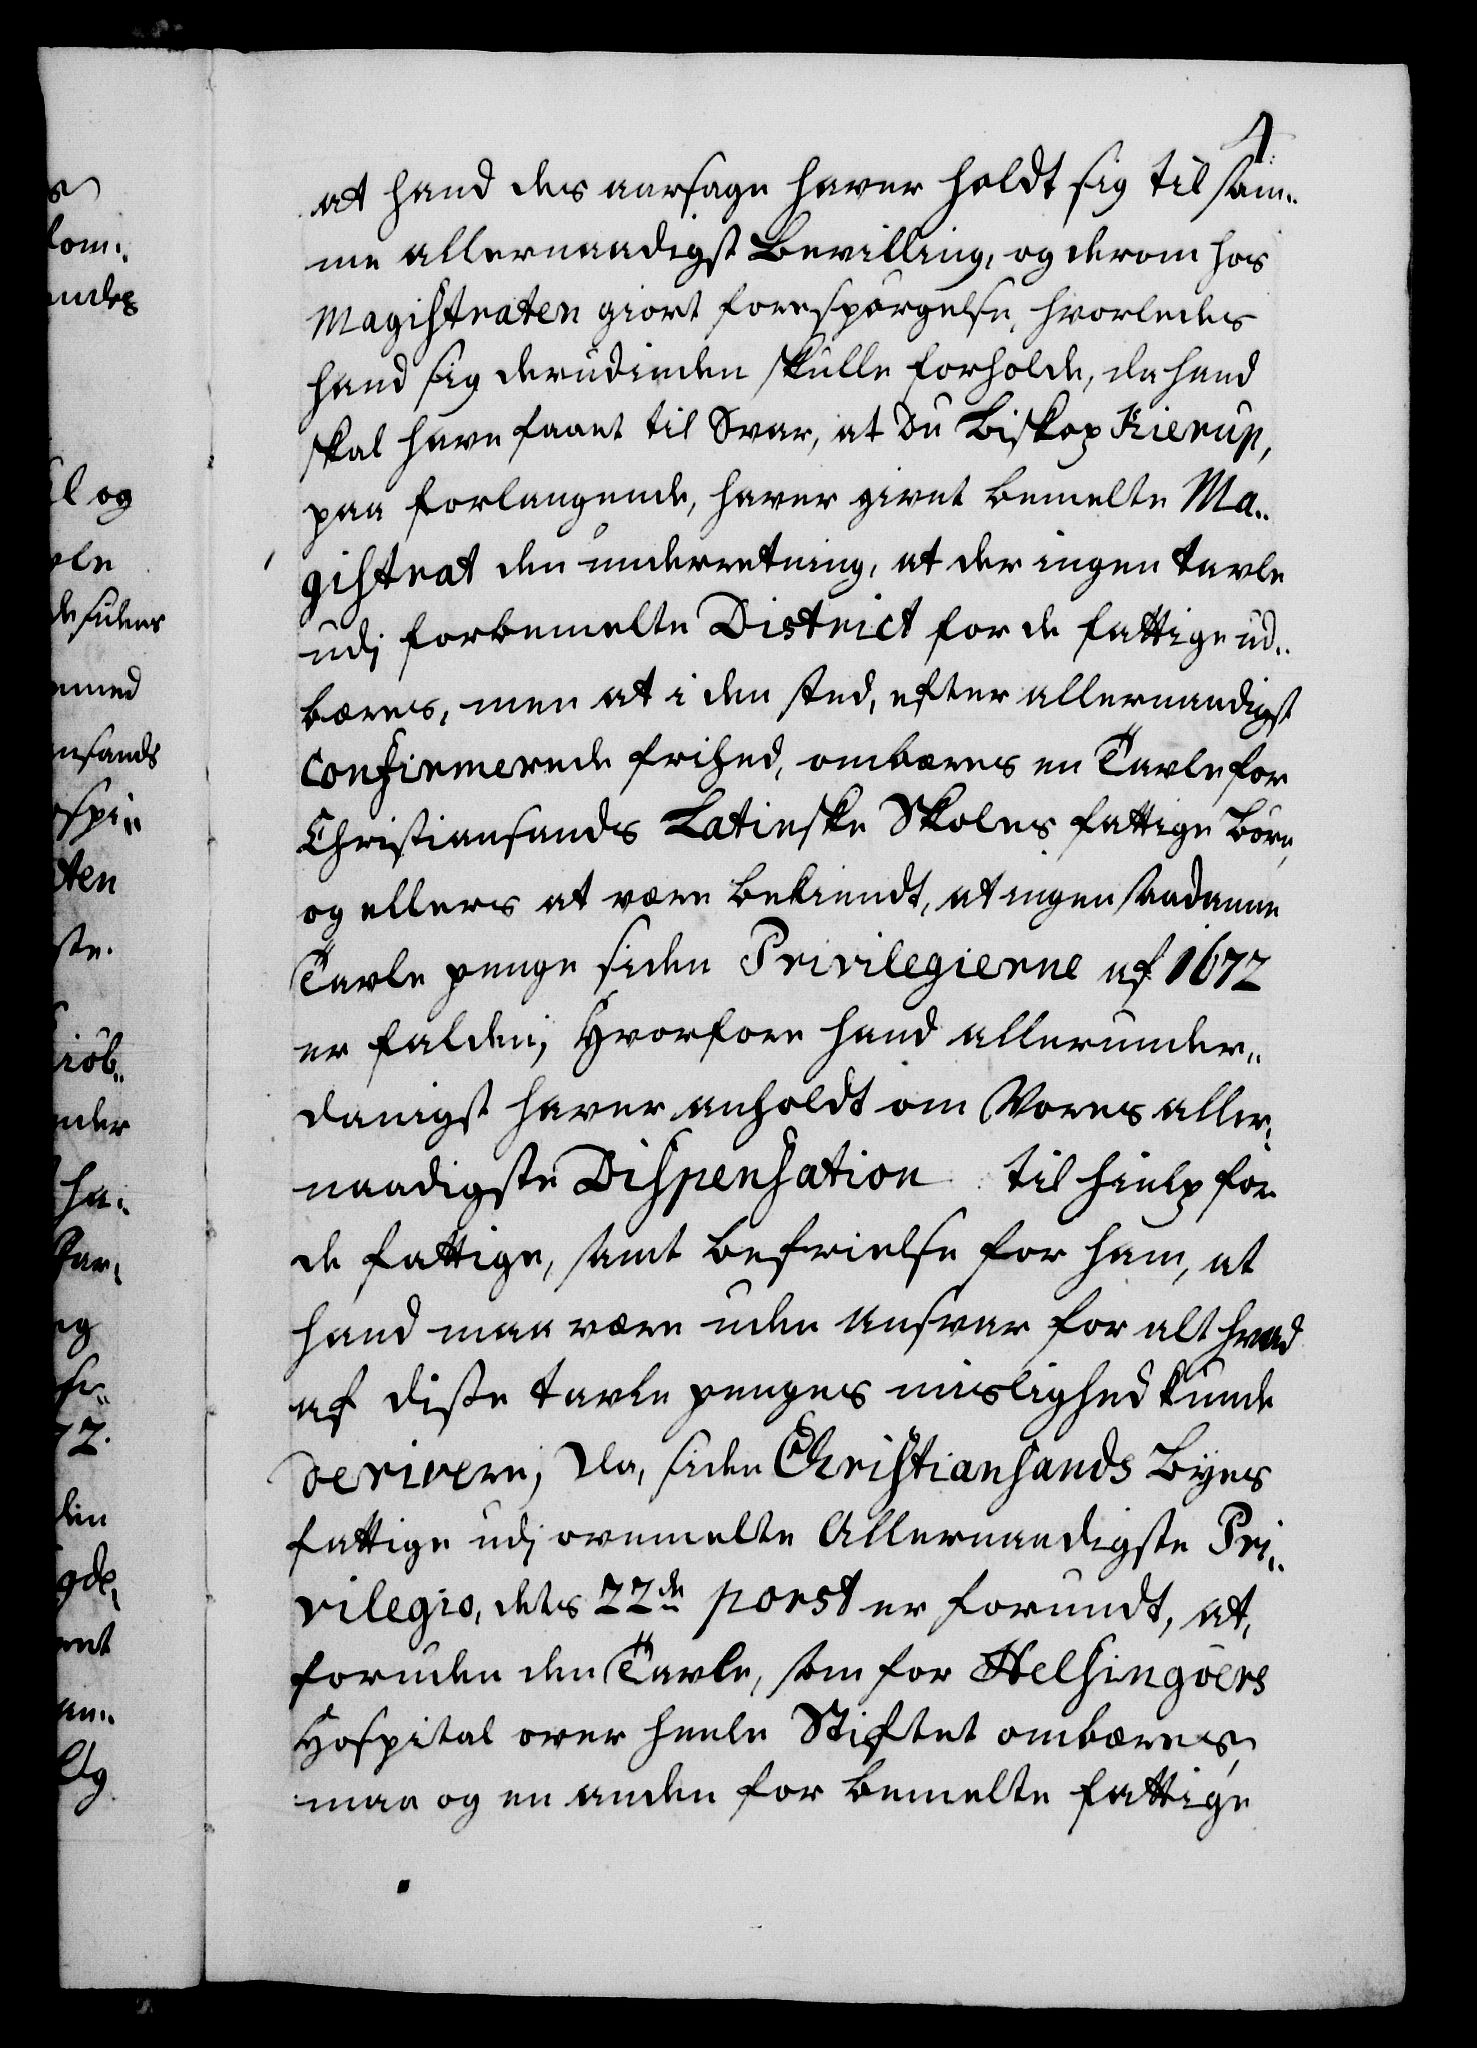 4.
at hand des aarsage haver holdt sig til sam„
me allernaadigst Bevilling, og derom hos
Magistraten giort forespørgelse, hvorledes
hand sig derudinden skulle forholde, da hand
skal have faaet til Svar, at Du Biskop Kierup,
paa forlangende, haver givet bemelte Ma„
gistrat den underretning, at der ingen tavle
udj forbemelte District for de fattige ud„
bæres, men at i den sted, efter allernaadigst
confirmerede frihed, ombæres en Tavle for
Christiansands Latinske Skoles fattige Børn,
og ellers at være bekiendt, at ingen saadanne
Tavle penge siden Privilegierne af 1672
er falden; Hvorfore hand allerunder„
danigst haver anholdt om Vores aller„
naadigste Dispensation til hielp for
de fattige, samt befrielse for ham, at
hand maa være uden ansvar for alt hvad
af disse tavle penges mislighed kunde
derivere; Da, siden Christiansands Byes
fattige udj ovemelte Allernaadigste Pri„
vilegio, dets 22de post er forundt, at,
foruden den Tavle, som for Helsingøers
Hospital over heele Stiftet ombæres,
maa og en anden for bemelte fattige
lom„
andes
l og
vle
de sidens
nmed
nsands
ospi„
ten
ste.
iøb„
nder
ha„
ar„
og
se„
72.
den
gde,
ent
en„
lg